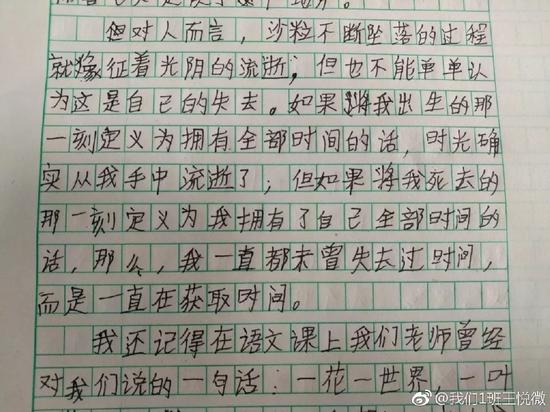 但对人而言，沙粒不断坠落的过程
就像征着光阴的流逝，但也不能单单认
为这是自己的失去。如果将我出生的那
一刻定义为拥有全部时间的话，时光确
实从我手中流逝了；但如果将我死去的
那一刻定义为我拥有了自己全部时间的
话，那么，我一直都未曾失去过时间，
而是一直在获取时间。
我还记得在语文课上我们老师曾经
对我们说的一句话：一花一世界，一叶
@我们1班王悦微